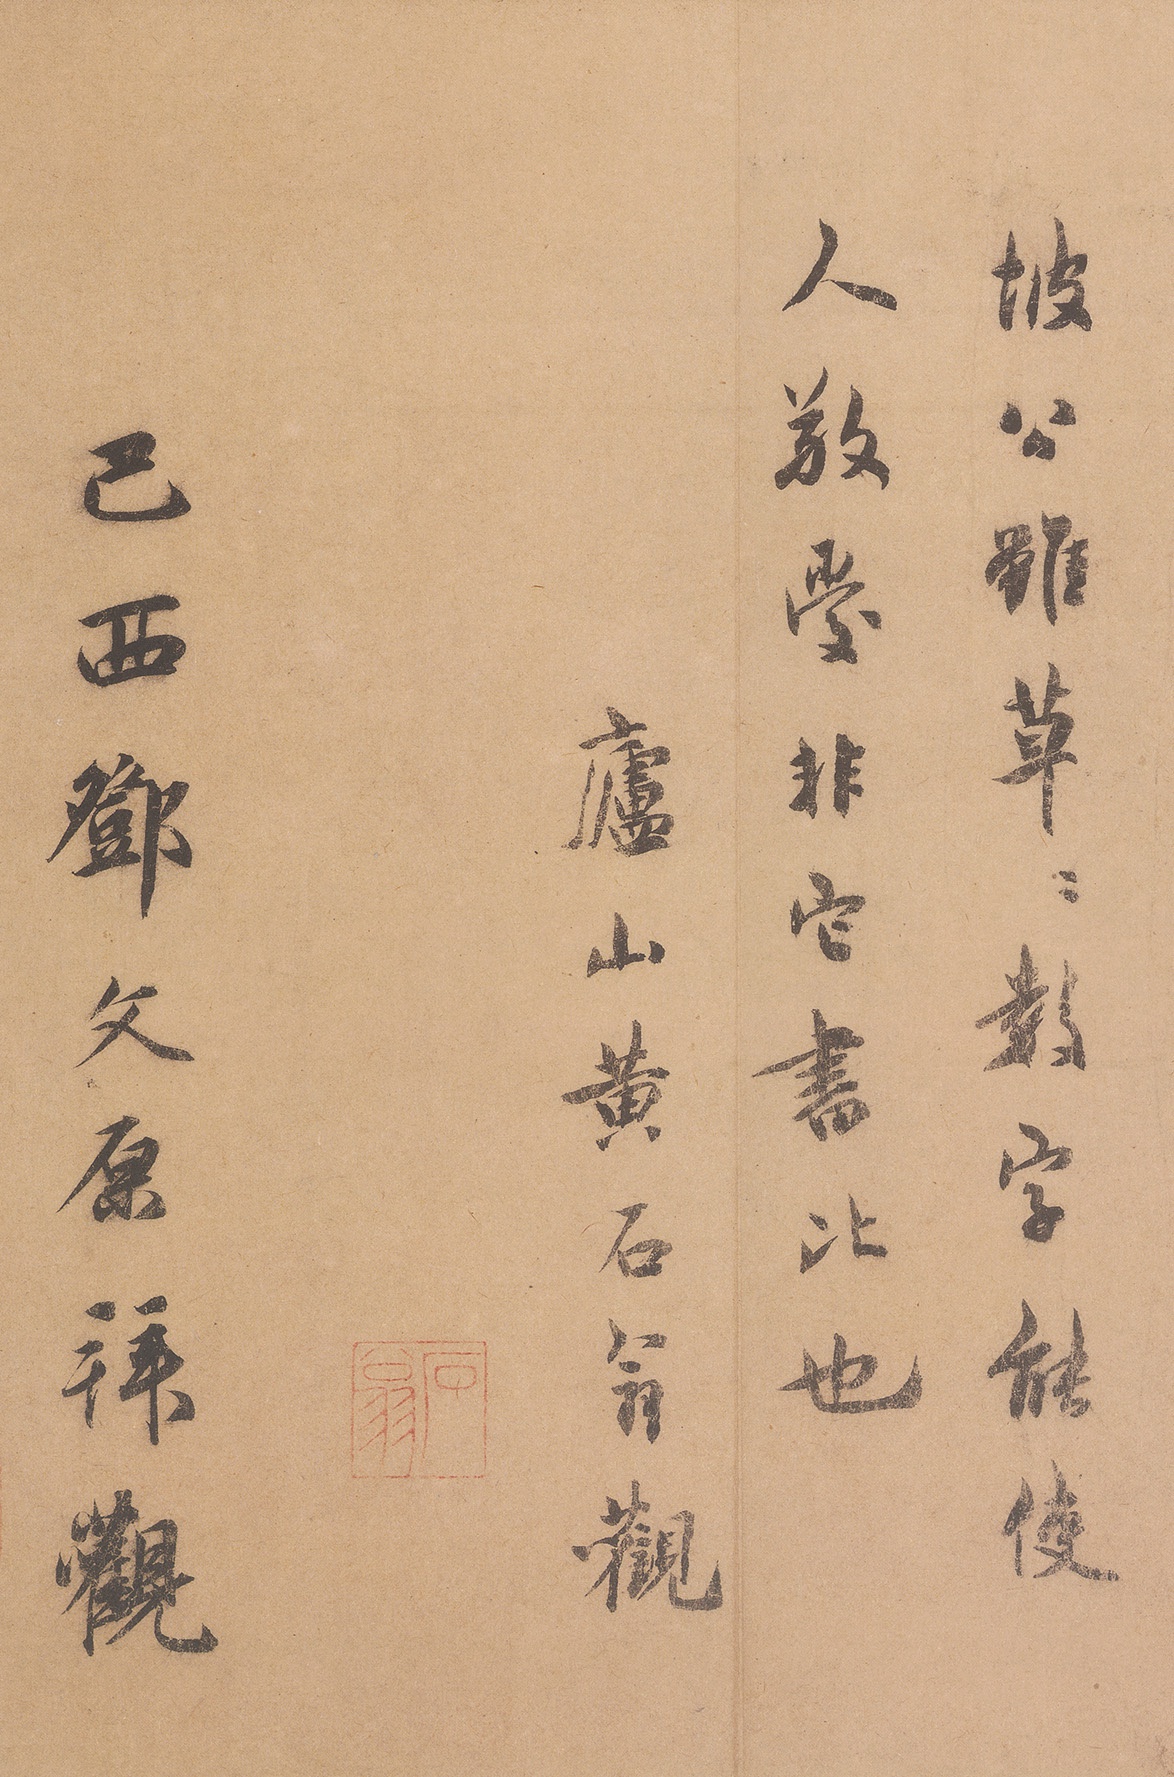 坡公雖草〻數字能使
人敬愛非它書比也
廬山黃石翁觀
石翁
己酉鄧文原拜觀